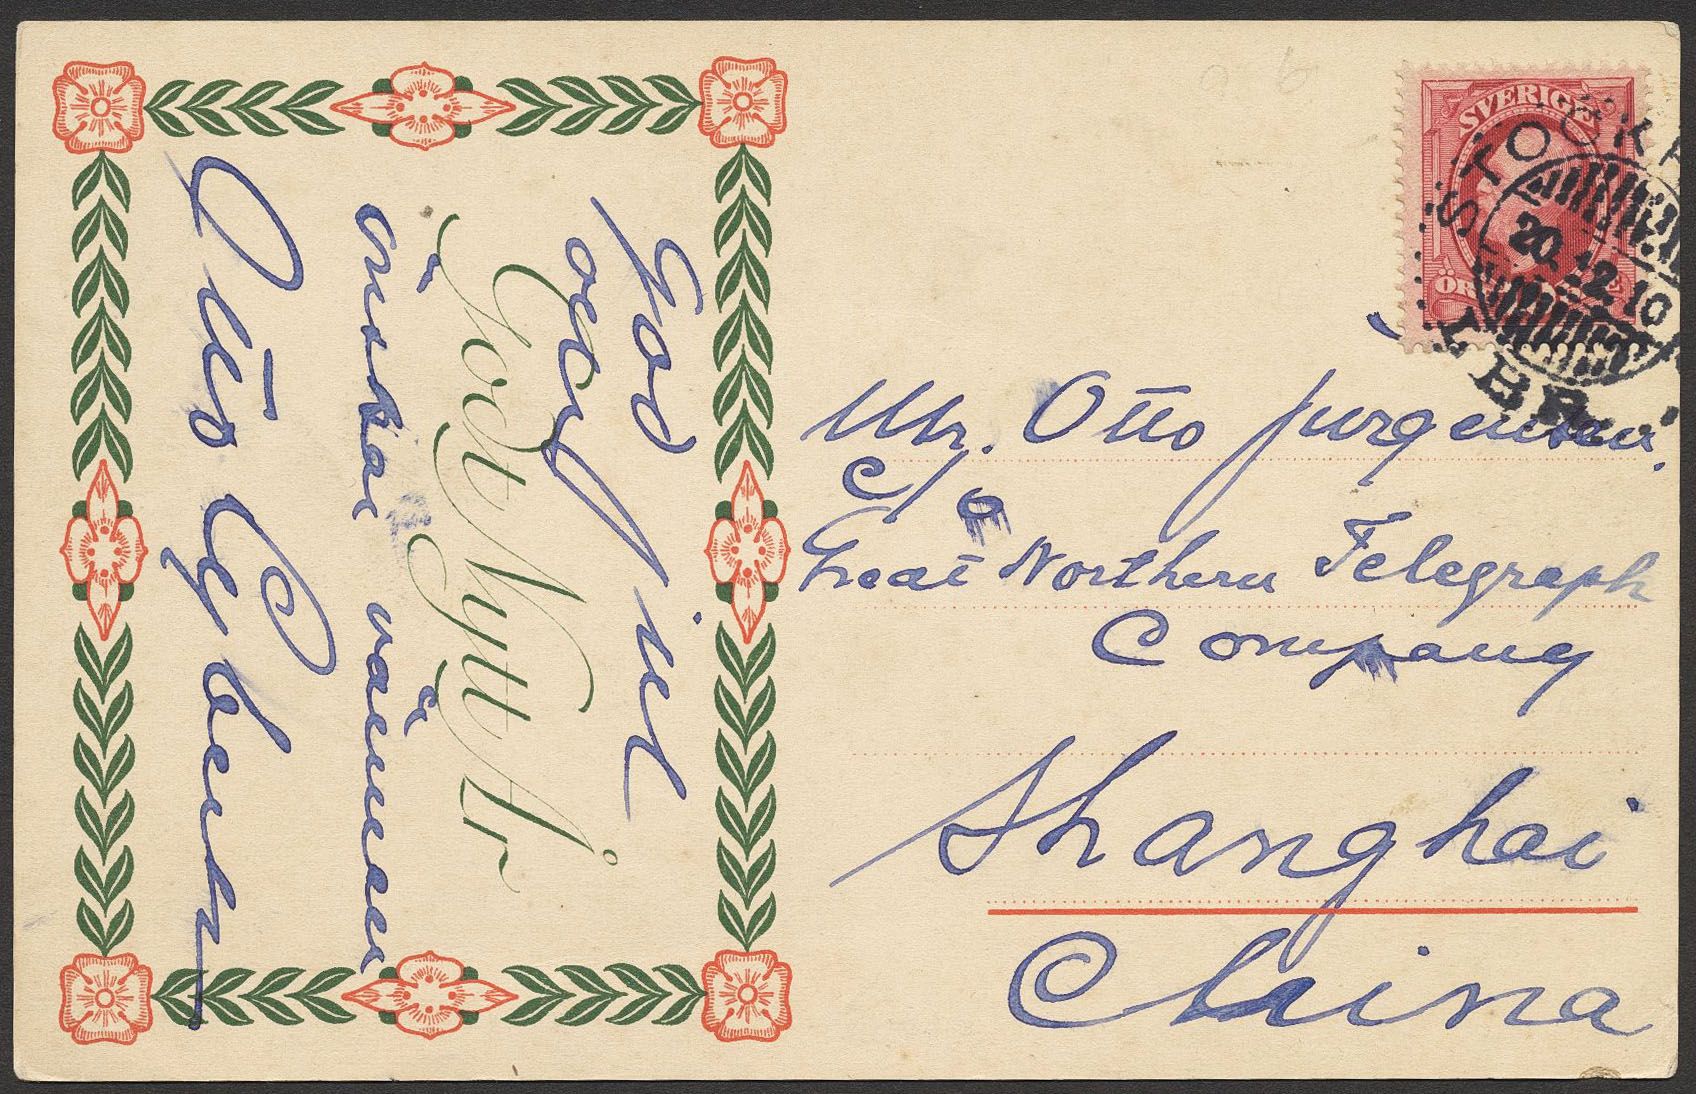 God Jul
och
Godt Nytt År
önskar vännen
Otto
SVERIGE
20.12.10
Mr. Otto Jurgensen.
C/o
Great Northern Telegraph
Company
Shanghai
China